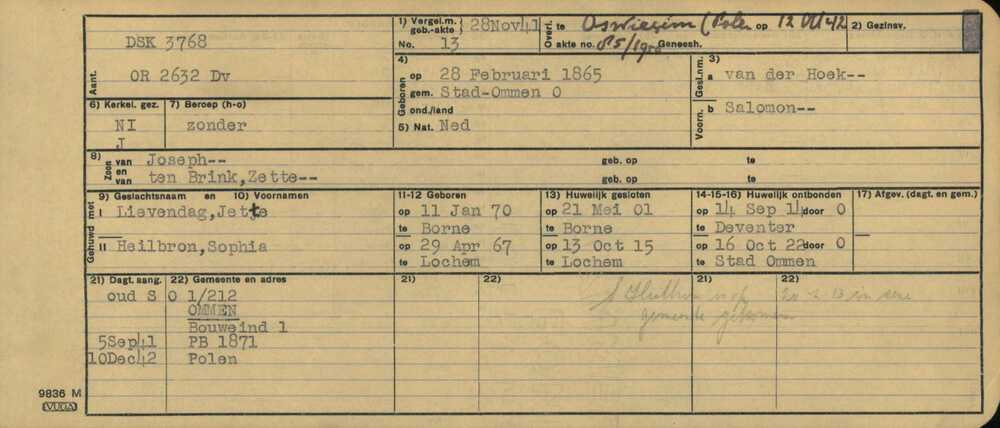 DSK 3768
OR 2632 Dv
Aant.
1) Vergel.m. geb.-akte 28Nov41
No. 13
Overl. te Oswiecim (Polen op 12 VII 42
akte no. 85/1950 Geneesh.
2) Gezinsv.
4)
Geboren
op 28 Februari 1865
gem. Stad-Ommen O
ond./land
5) Nat. Ned
3)
Gesl.nm. a van der Hoek--
Voorn. b Salomon--
6) Kerkel. gez. 7) Beroep (h-o)
NI zonder
J
8)
Zoon van Joseph-- geb. op te
en van ten Brink,Zette-- geb. op te
9) Geslachtsnaam en 10) Voornamen 11-12 Geboren 13) Huwelijk gesloten 14-15-16) Huwelijk ontbonden 17) Afgev. (dagt. en gem.)
Gehuwd met
I Lievendag,Jette op 11 Jan 70 op 21 Mei 01 op 14 Sep 14 door O
te Borne te Borne te Deventer
II Heilbron,Sophia op 29 Apr 67 op 13 Oct 15 op 16 Oct 22 door O
te Lochem te Lochem te Stad Ommen
21) Dagt. aang. 22) Gemeente en adres 21) 22) 21) 22)
oud S O 1/212
OMMEN
Bouweind 1
5Sep41 PB 1871
10Dec42 Polen
in
gemeente
9836 M
VUGA